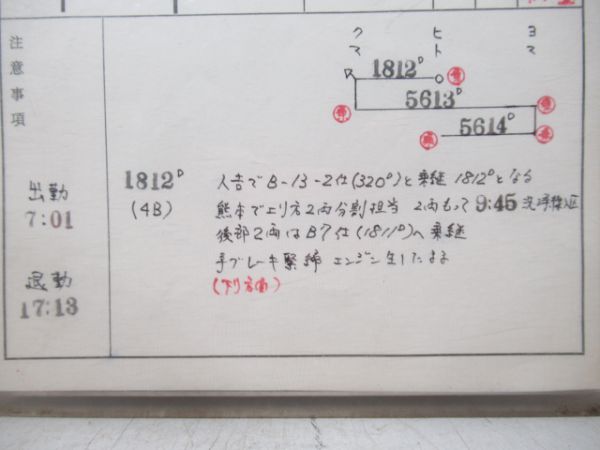 注意事項
クマ ヒト ヨマ
1812D
5613D
5614D
出勤
7:01
退勤
17:13
1812D
(4B)
人吉でB-13-2仕(320D)と乗継 1812Dとなる
熊本で上り方2両分割担当 2両もって 9:45
後部2両はB7仕(1811D)へ乗継
手ブレーキ緊締 エンジン生したまま
(下り方向)